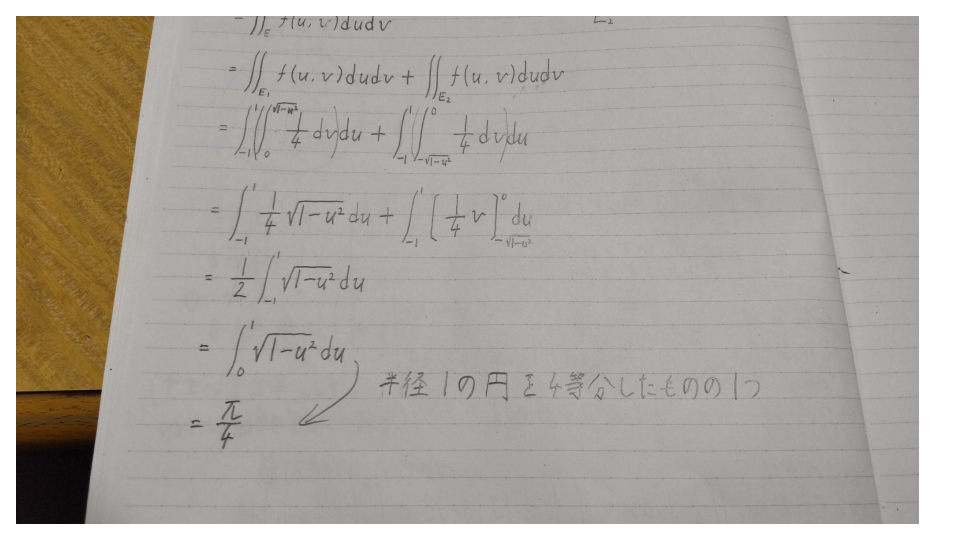 = ∬_E f(u,v)dudv E₂
= ∬_{E₁} f(u,v)dudv + ∬_{E₂} f(u,v)dudv
= ∫_{-1}^{1}(∫_{0}^{√(1-u²)} 1/4 dv)du + ∫_{-1}^{1}(∫_{-√(1-u²)}^{0} 1/4 dv)du
= ∫_{-1}^{1} 1/4 √(1-u²) du + ∫_{-1}^{1} [1/4 v]_{-√(1-u²)}^{0} du
= 1/2 ∫_{-1}^{1} √(1-u²) du
= ∫_{0}^{1} √(1-u²) du
半径1の円を4等分したものの1つ
= π/4